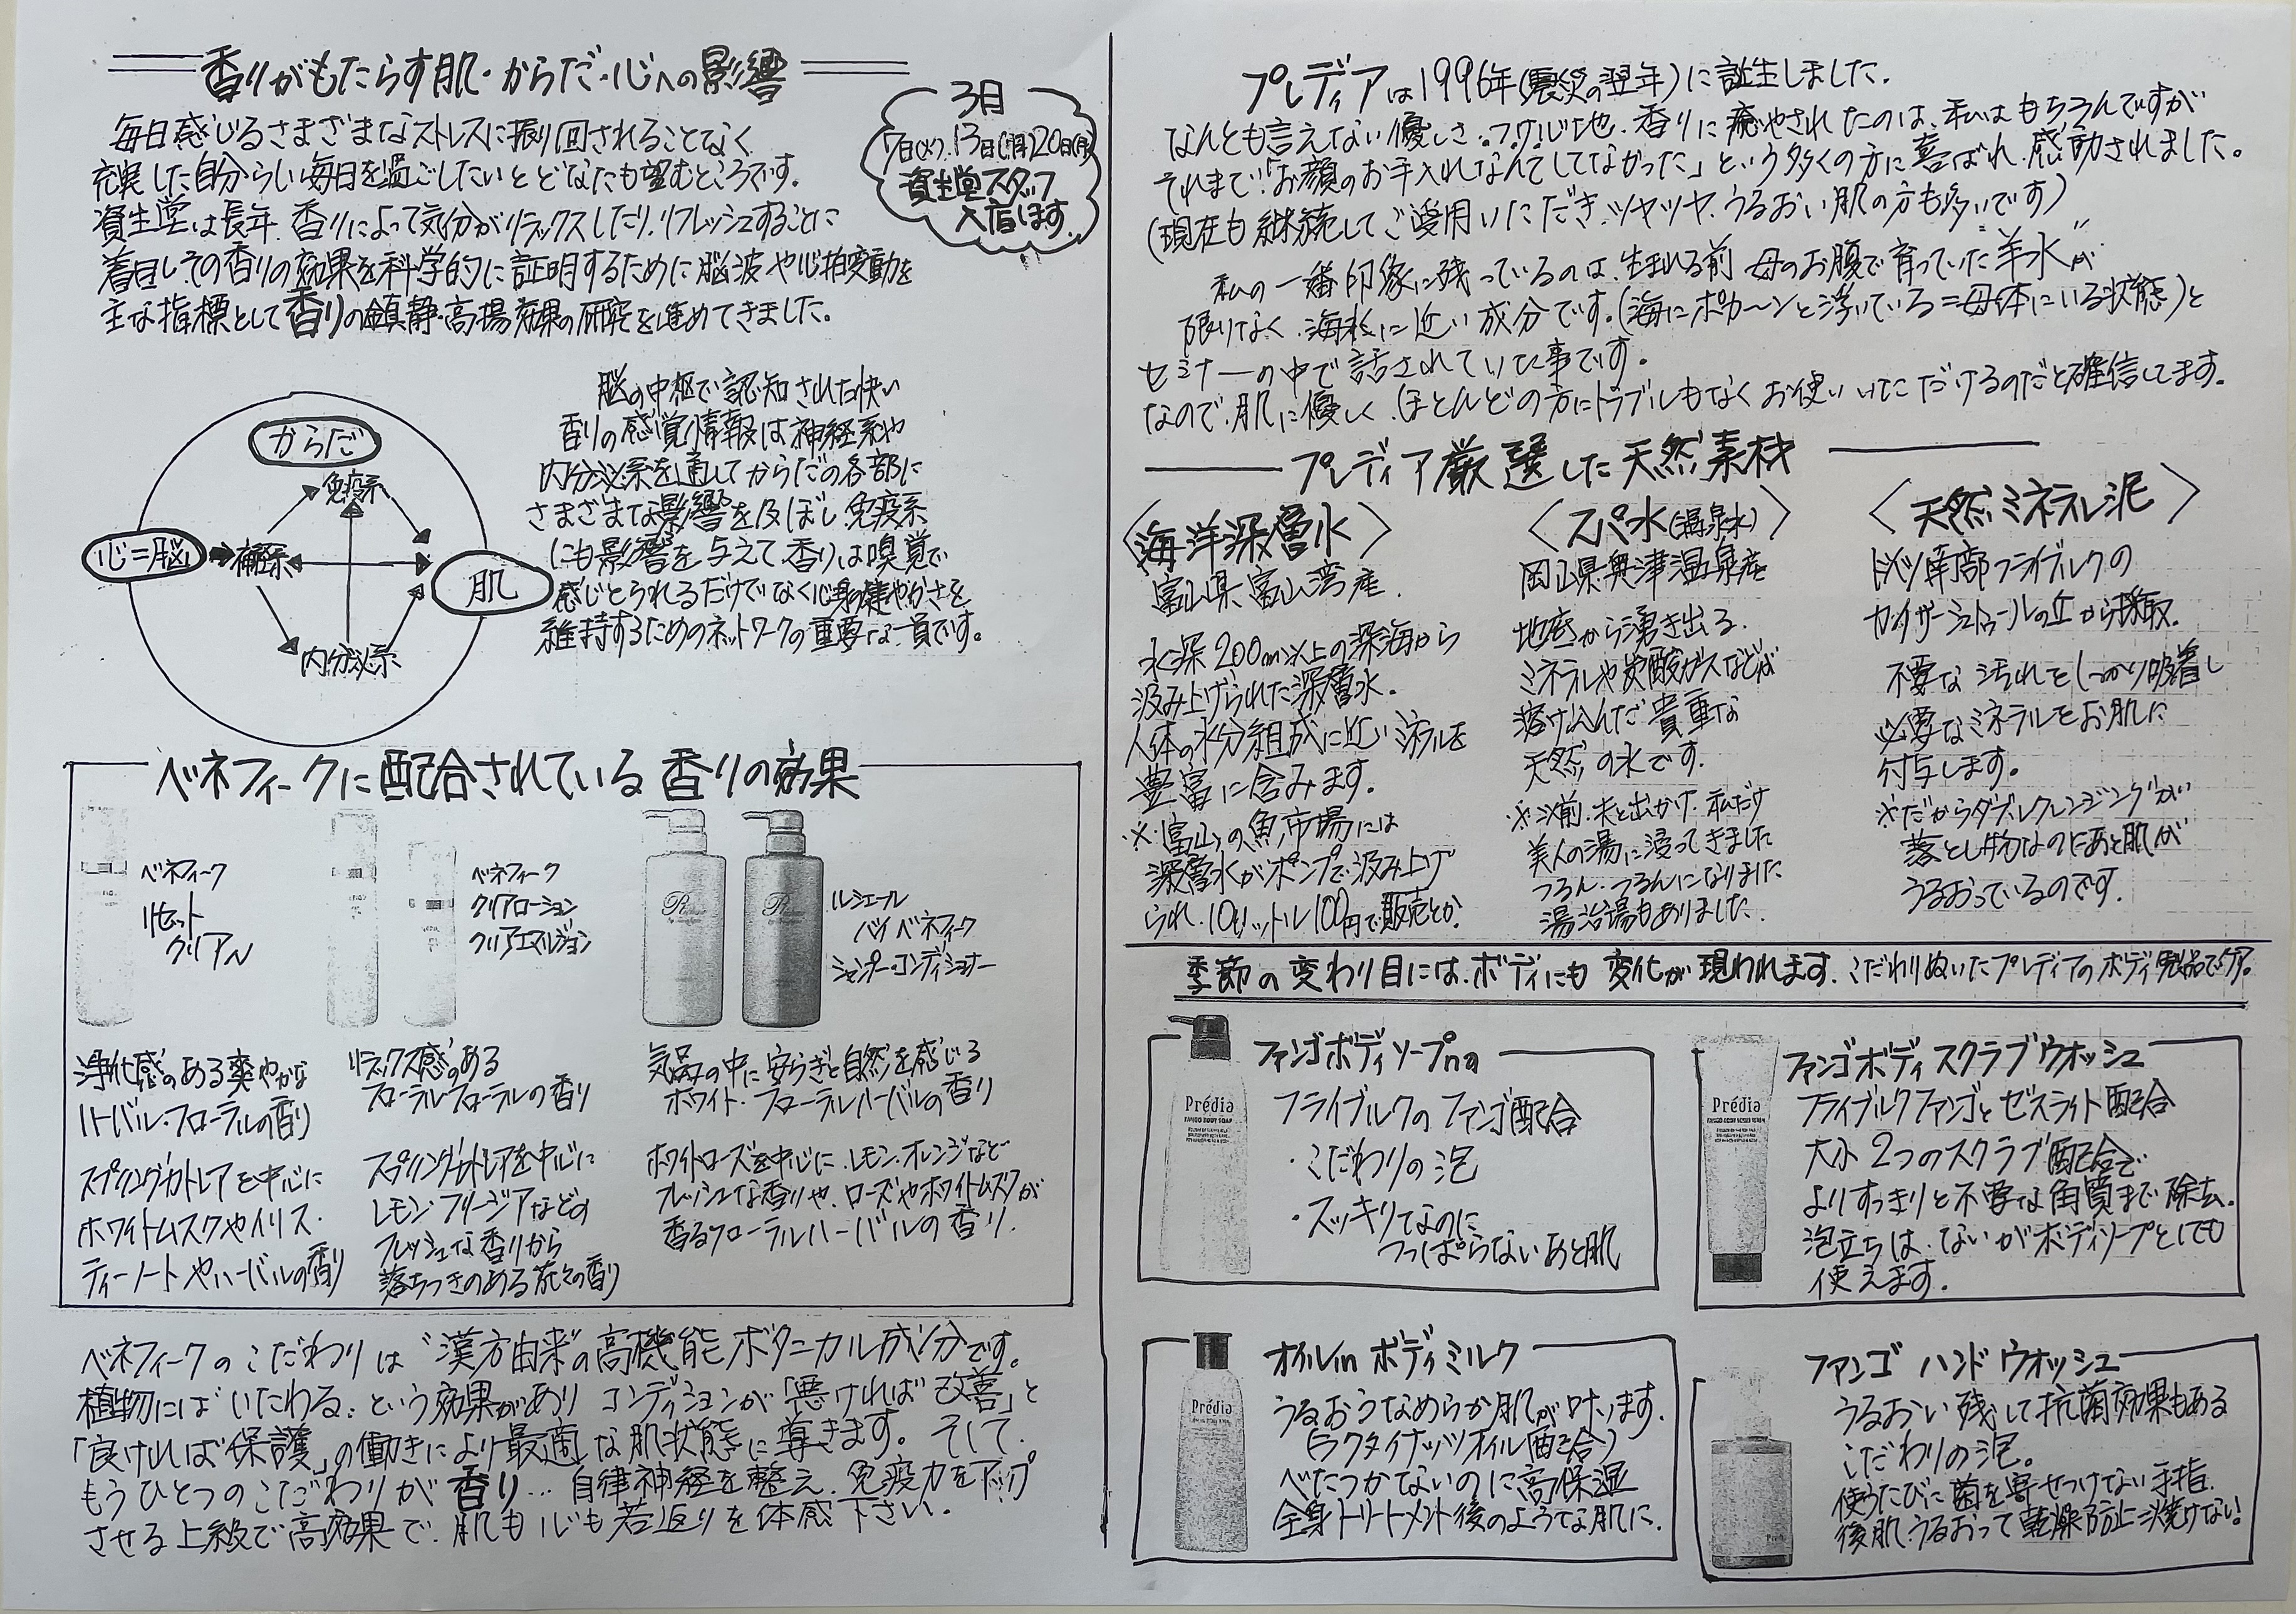 香りがもたらす肌・からだ・心への影響
毎日感じるさまざまなストレスに振り回されることなく
充実した自分らしい毎日を過ごしたいとどなたも望むところです。
資生堂は長年、香りによって気分がリラックスしたり、リフレッシュすることに
着目しその香りの効果を科学的に証明するために脳波や心拍変動を
主な指標として香りの鎮静・高揚効果の研究を進めてきました。
3月
7日(火)、13日(月)20日(月)
資生堂スタッフ
入店します。
脳の中枢で認知された快い
香りの感覚情報は神経系や
内分泌系を通してからだの各部に
さまざまな影響を及ぼし免疫系
にも影響を与えて香りは嗅覚で
感じとられるだけでなく心身の健やかさを
維持するためのネットワークの重要な一員です。
からだ
免疫系
心=脳
神経系
肌
内分泌系
ベネフィークに配合されている香りの効果
ベネフィーク
リセット
クリアN
ベネフィーク
クリアローション
クリアエマルジョン
リシェール
バイ ベネフィーク
シャンプー・コンディショナー
浄化感のある爽やかな
ハーバル・フローラルの香り
スプリングカトレアを中心に
ホワイトムスクやイリス・
ティーノートやハーバルの香り
リラックス感のある
フローラルフローラルの香り
スプリングカトレアを中心に
レモン・フリージアなどの
フレッシュな香りから
落ちつきのある花々の香り
気品の中に安らぎと自然を感じる
ホワイト・フローラルハーバルの香り
ホワイトローズを中心に、レモン・オレンジなど
フレッシュな香りや、ローズやホワイトムスクが
香るフローラルハーバルの香り。
ベネフィークのこだわりは"漢方由来"の高機能ボタニカル成分です。
植物には"いたわる"という効果があり コンディションが「悪ければ改善」と
「良ければ保護」の働きにより最適な肌状態に導きます。そして、
もうひとつのこだわりが香り…自律神経を整え、免疫力をアップ
させる上級で高効果で、肌も心も若返りを体感下さい。
プレディアは1996年(震災の翌年)に誕生しました。
なんとも言えない優しさ、つけ心地、香りに癒やされたのは、私はもちろんですが
それまで「お顔のお手入れなんてしてなかった」という多くの方に喜ばれ、感動されました。
(現在も継続してご愛用いただき、ツヤツヤ、うるおい肌の方も多いです)
私の一番印象に残っているのは、生まれる前 母のお腹で育っていた"羊水"が
限りなく、海水に近い成分です。(海にポカ〜ンと浮いている=母体にいる状態)と
セミナーの中で話されていた事です。
なので、肌に優しく、ほとんどの方にトラブルもなくお使いいただけるのだと確信してます。
プレディア厳選した天然素材
〈海洋深層水〉
富山県富山湾産。
水深200m以上の深海から
汲み上げられた深層水。
人体の水分組成に近いミネラルを
豊富に含みます。
※富山の魚市場には
深層水がポンプで汲み上げ
られ、10リットル100円で販売とか。
〈スパ水(温泉水)〉
岡山県奥津温泉産
地底から湧き出る、
ミネラルや炭酸ガスなどが
溶け込んだ貴重な
天然の水です。
※以前、夫と出かけ、私だけ
美人の湯に浸ってきました
つるん、つるんになりました
湯治場もありました。
〈天然ミネラル泥〉
ドイツ南部フライブルクの
カイザーシュトゥールの丘から採取。
不要な汚れをしっかり吸着し
必要なミネラルをお肌に
付与します。
※だからダブルクレンジングがいい
落とし物なのにあと肌が
うるおっているのです。
季節の変わり目には、ボディにも変化が現われます。こだわりぬいたプレディアのボディ製品でケア。
ファンゴボディソープna
フライブルクのファンゴ配合
・こだわりの泡
・スッキリなのに
つっぱらないあと肌
Prédia
FANGO BODY SOAP
ファンゴボディスクラブウォッシュ
フライブルクファンゴとゼスライト配合
大小2つのスクラブ配合で
よりすっきりと不要な角質まで除去。
泡立ちは、ないがボディソープとしても
使えます。
Prédia
オイルin ボディミルク
うるおうなめらか肌が叶います。
(ラクタイナッツオイル配合)
べたつかないのに高保湿
全身トリートメント後のような肌に。
Prédia
ファンゴ ハンドウォッシュ
うるおい残して抗菌効果もある
こだわりの泡。
使うたびに菌を寄せつけない手指。
後肌、うるおって乾燥防止=焼けない!